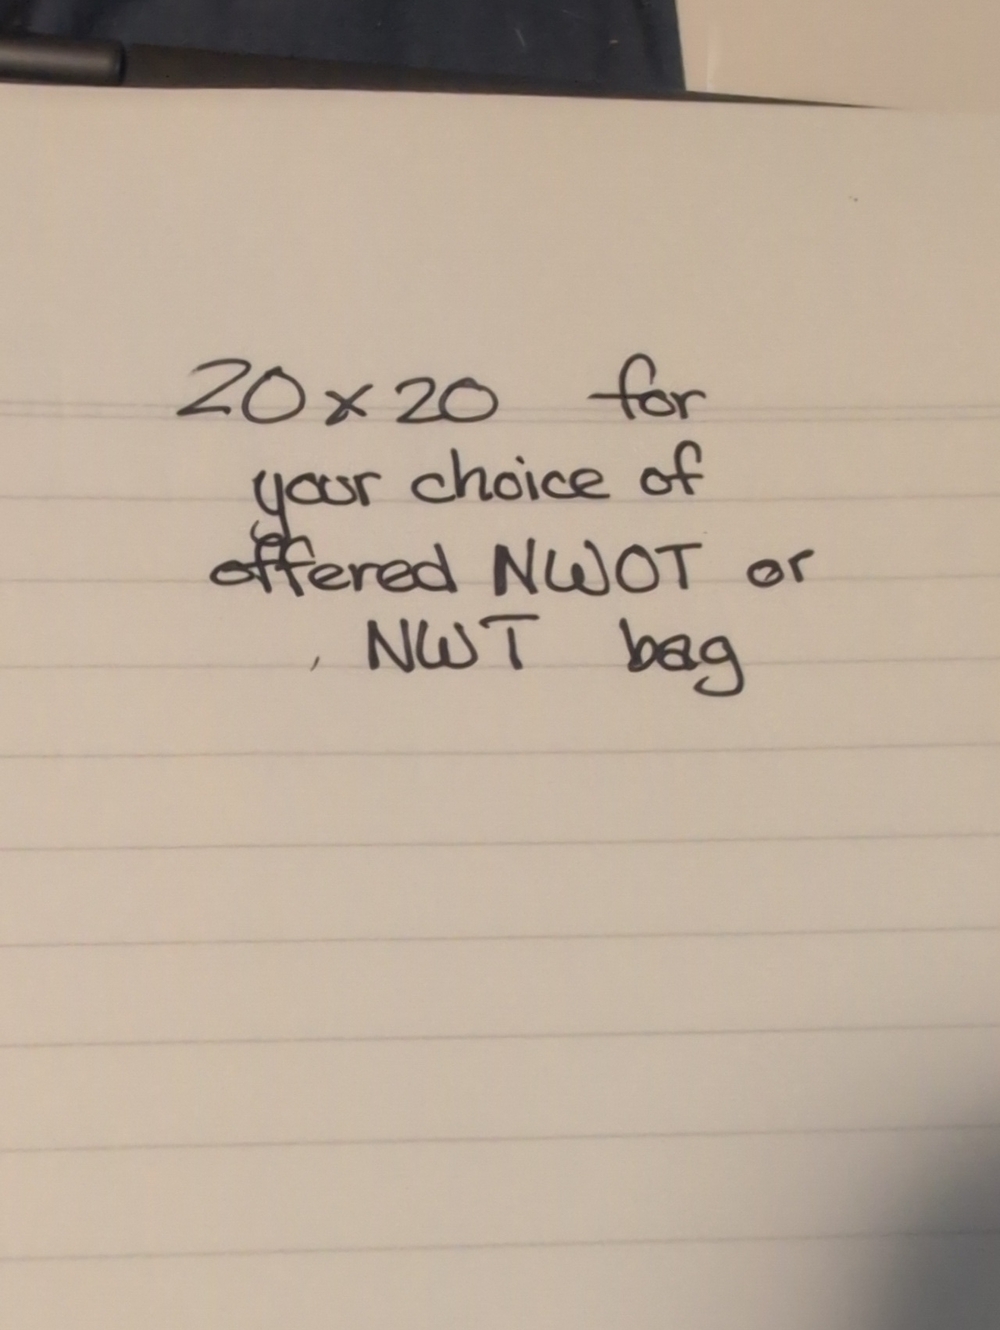 20x20 for
your choice of
offered NWOT or
NWT bag